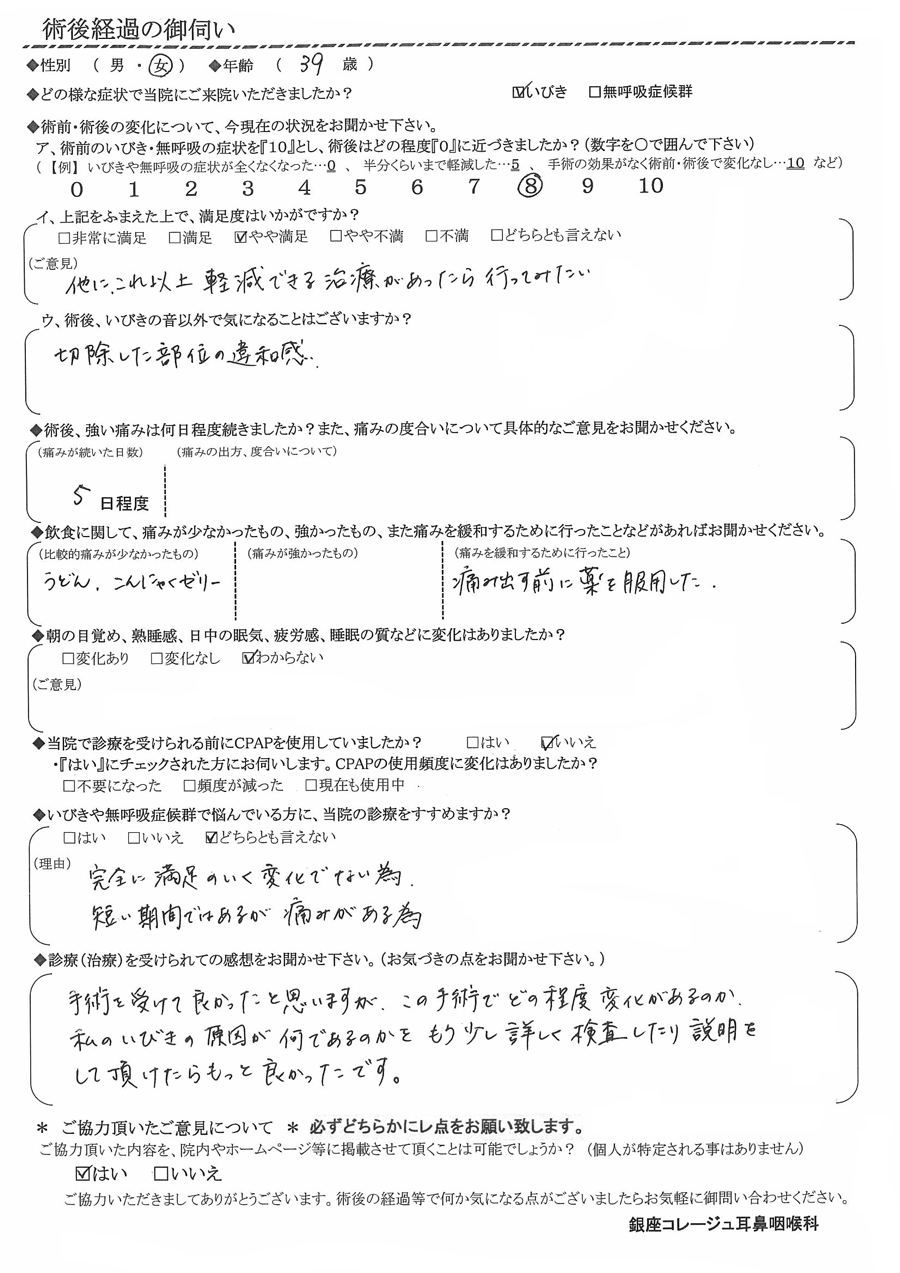 術後経過の御伺い
◆性別 ( 男 ・ 女 ) ◆年齢 ( 39 歳 )
◆どの様な症状で当院にご来院いただきましたか? ☑いびき □無呼吸症候群
◆術前・術後の変化について、今現在の状況をお聞かせ下さい。
ア、術前のいびき・無呼吸の症状を『10』とし、術後はどの程度『0』に近づきましたか?(数字を〇で囲んで下さい)
(【例】いびきや無呼吸の症状が全くなくなった…0 、 半分くらいまで軽減した…5 、 手術の効果がなく術前・術後で変化なし…10 など)
0 1 2 3 4 5 6 7 ⑧ 9 10
イ、上記をふまえた上で、満足度はいかがですか?
□非常に満足 □満足 ☑やや満足 □やや不満 □不満 □どちらとも言えない
(ご意見)
他に、これ以上 軽減できる治療があったら行ってみたい
ウ、術後、いびきの音以外で気になることはございますか?
切除した部位の違和感.
◆術後、強い痛みは何日程度続きましたか?また、痛みの度合いについて具体的なご意見をお聞かせください。
(痛みが続いた日数) (痛みの出方、度合いについて)
5 日程度
◆飲食に関して、痛みが少なかったもの、強かったもの、また痛みを緩和するために行ったことなどがあればお聞かせください。
(比較的痛みが少なかったもの) (痛みが強かったもの) (痛みを緩和するために行ったこと)
うどん、こんにゃくゼリー 痛み出す前に薬を服用した.
◆朝の目覚め、熟睡感、日中の眠気、疲労感、睡眠の質などに変化はありましたか?
□変化あり □変化なし ☑わからない
(ご意見)
◆当院で診療を受けられる前にCPAPを使用していましたか? □はい ☑いいえ
・『はい』にチェックされた方にお伺いします。CPAPの使用頻度に変化はありましたか?
□不要になった □頻度が減った □現在も使用中
◆いびきや無呼吸症候群で悩んでいる方に、当院の診療をすすめますか?
□はい □いいえ ☑どちらとも言えない
(理由)
完全に満足のいく変化でない為.
短い期間ではあるが 痛みがある為
◆診療(治療)を受けられての感想をお聞かせ下さい。(お気づきの点をお聞かせ下さい。)
手術を受けて良かったと思いますが、この手術でどの程度変化があるのか、
私のいびきの原因が何であるのかをもう少し詳しく検査したり説明を
して頂けたらもっと良かったです。
* ご協力頂いたご意見について * 必ずどちらかにレ点をお願い致します。
ご協力頂いた内容を、院内やホームページ等に掲載させて頂くことは可能でしょうか? (個人が特定される事はありません)
☑はい □いいえ
ご協力いただきましてありがとうございます。術後の経過等で何か気になる点がございましたらお気軽に御問い合わせください。
銀座コレージュ耳鼻咽喉科